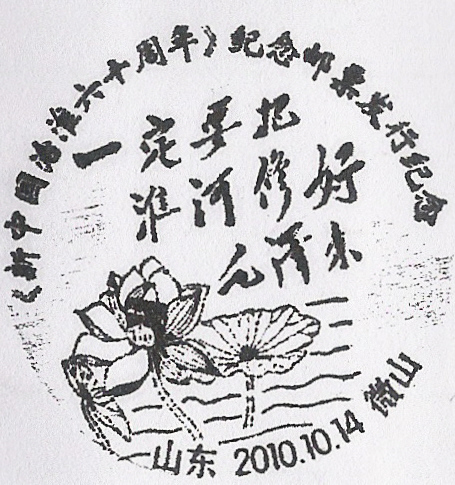 《新中国治淮六十周年》纪念邮票发行纪念
一定要把
淮河修好
毛泽东
山东 2010.10.14 微山